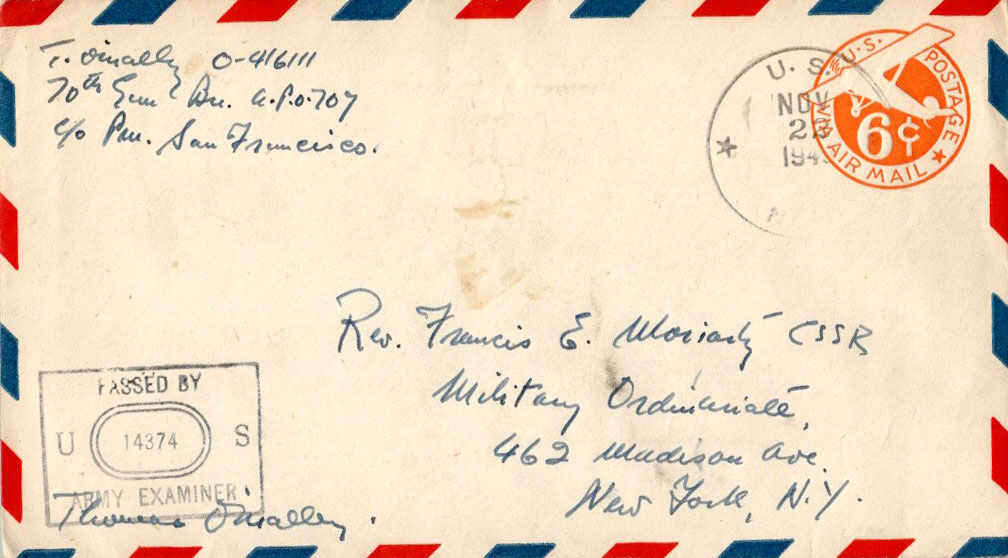 T. O'Malley O-416111
70th Genl Bn. A.P.O. 707
c/o Pm. San Francisco.
U.S.
NOV
194
U.S. POSTAGE
6¢
VIA AIR MAIL
Rev. Francis E. Moriarty CSSR
Military Ordinariate,
462 Madison Ave.
New York, N.Y.
PASSED BY
U 14374 S
ARMY EXAMINER
Thomas O'Malley.